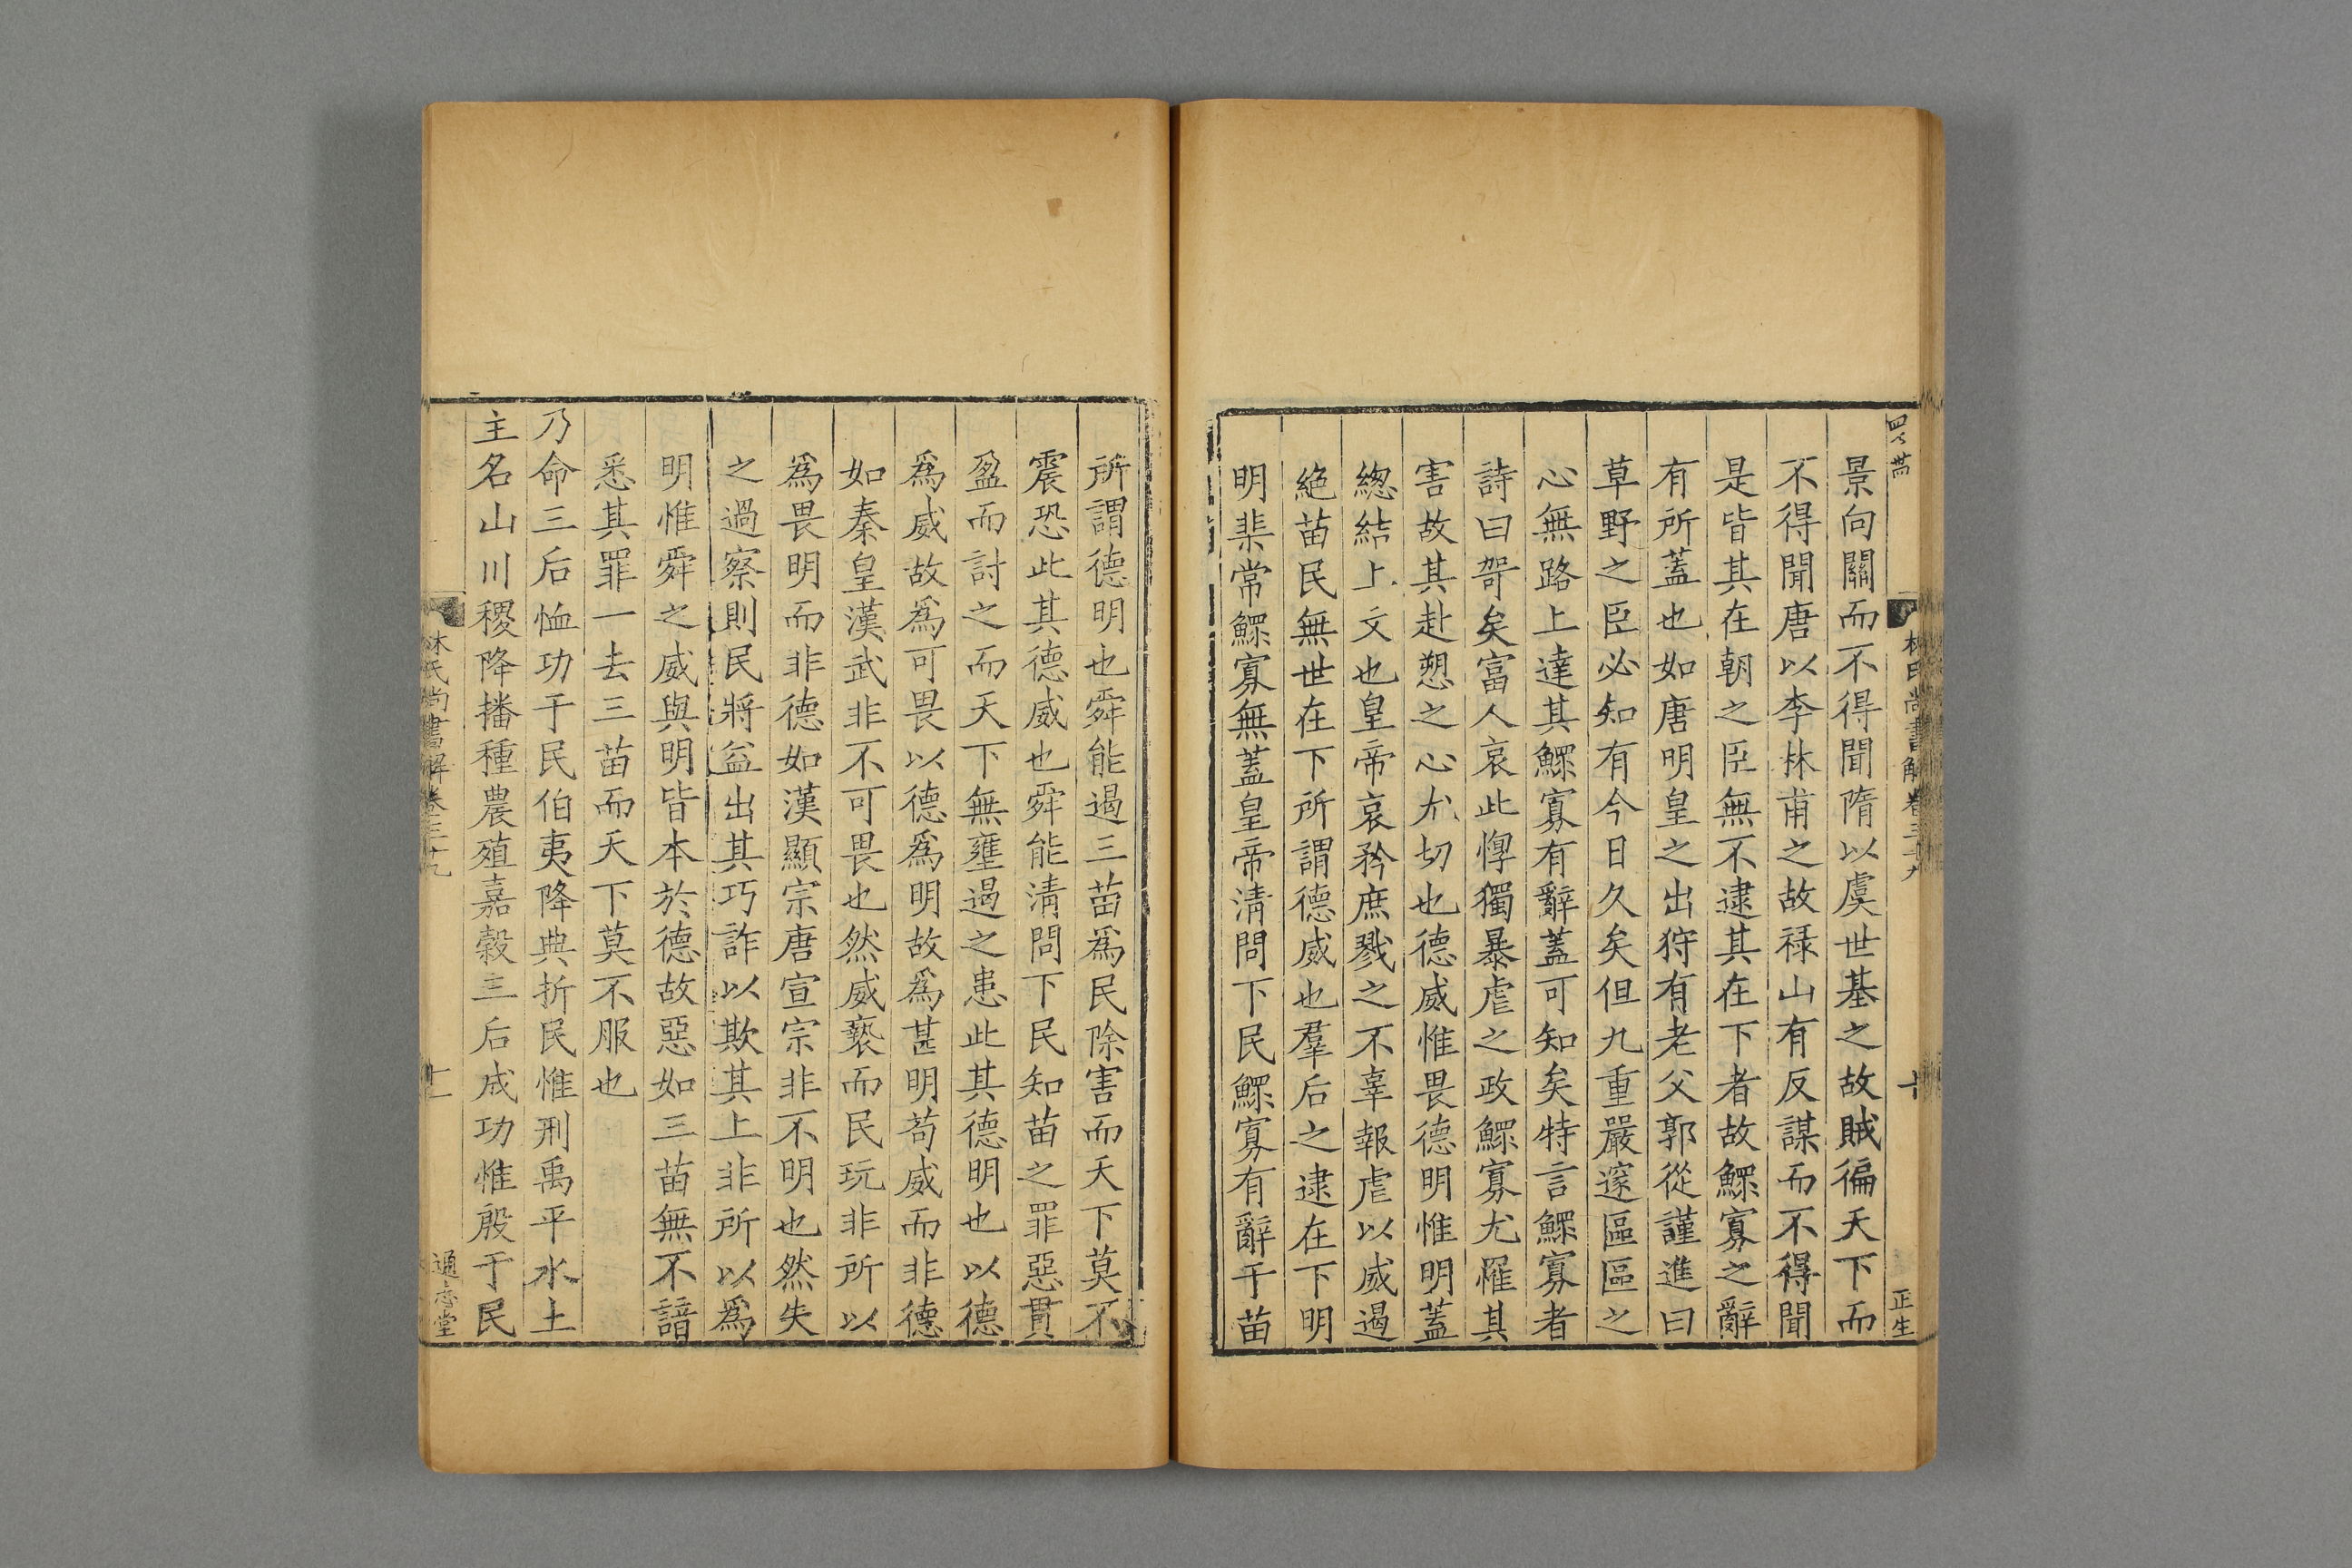 林氏尚書解卷三十九
十
正生
景向關而不得聞隋以虞世基之故賊徧天下而
不得聞唐以李林甫之故禄山有反謀而不得聞
是皆其在朝之臣無不逮其在下者故鰥寡之辭
有所蓋也如唐明皇之出狩有老父郭從謹進曰
草野之臣必知有今日久矣但九重嚴邃區區之
心無路上達其鰥寡有辭蓋可知矣特言鰥寡者
詩曰哿矣富人哀此惸獨暴虐之政鰥寡尤罹其
害故其赴愬之心尤切也德威惟畏德明惟明蓋
緫結上文也皇帝哀矜庶戮之不辜報虐以威遏
絶苗民無世在下所謂德威也羣后之逮在下明
明棐常鰥寡無蓋皇帝清問下民鰥寡有辭于苗
所謂德明也舜能遏三苗為民除害而天下莫不
震恐此其德威也舜能清問下民知苗之罪惡貫
盈而討之而天下無壅遏之患此其德明也以德
為威故為可畏以德為明故為甚明苟威而非德
如秦皇漢武非不可畏也然威褻而民玩非所以
為畏明而非德如漢顯宗唐宣宗非不明也然失
之過察則民將益出其巧詐以欺其上非所以為
明惟舜之威與明皆本於德故惡如三苗無不諳
悉其罪一去三苗而天下莫不服也
乃命三后恤功于民伯夷降典折民惟刑禹平水土
主名山川稷降播種農殖嘉穀三后成功惟殷于民
林氏尚書解卷三十九
十一
通志堂